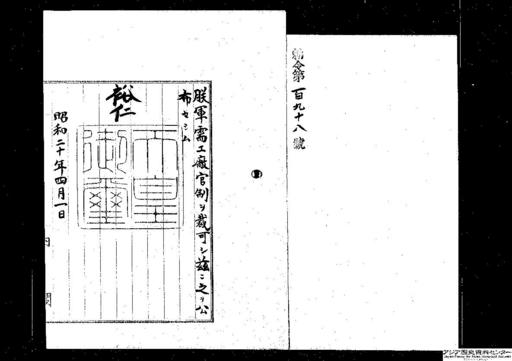 勅令第百九十八號
朕軍需工廠官制ヲ裁可シ茲ニ之ヲ公
布セシム
裕仁
天皇御璽
昭和二十年四月一日
内 閣
アジア歴史資料センター